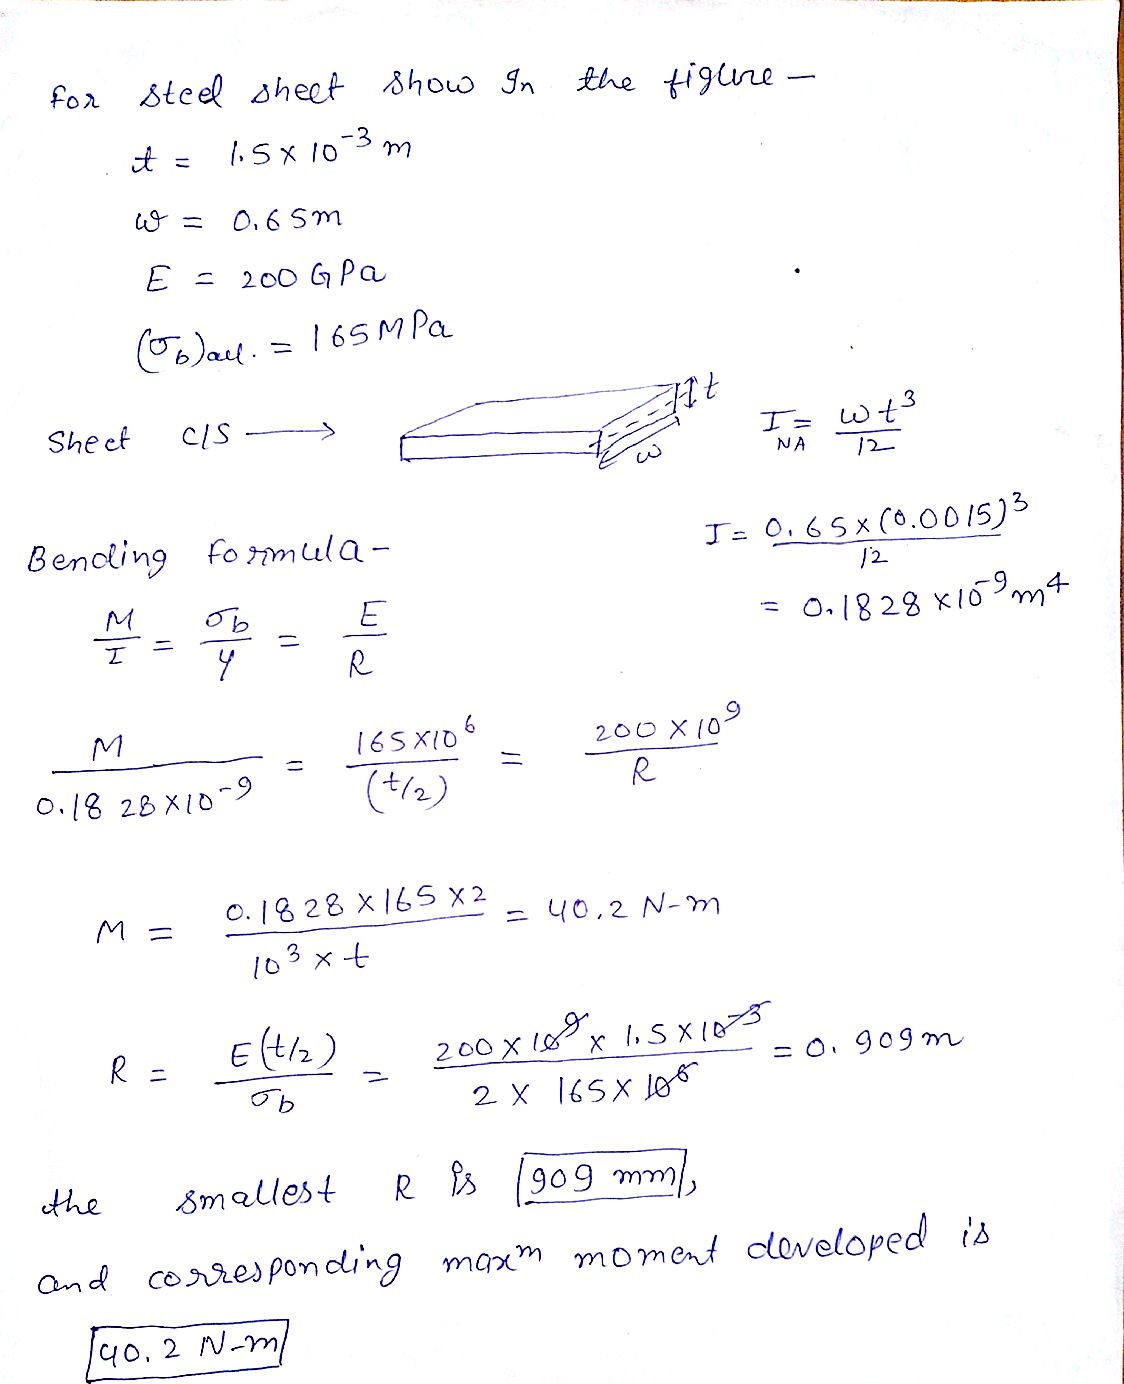 For steel sheet show In the figure –
t = 1.5 × 10⁻³ m
w = 0.65m
E = 200 GPa
(σb)all. = 165 MPa
Sheet c/s ⟶
t
w
I_NA = wt³/12
I = 0.65 × (0.0015)³/12
= 0.1828 × 10⁻⁹ m⁴
Bending formula –
M/I = σb/y = E/R
M/0.1828×10⁻⁹ = 165×10⁶/(t/2) = 200 × 10⁹/R
M = 0.1828 × 165 × 2/10³ × t = 40.2 N-m
R = E(t/2)/σb = 200 × 10⁹ × 1.5 × 10⁻³/2 × 165 × 10⁶ = 0.909m
the smallest R is 909 mm,
and corresponding maxᵐ moment developed is
40.2 N-m